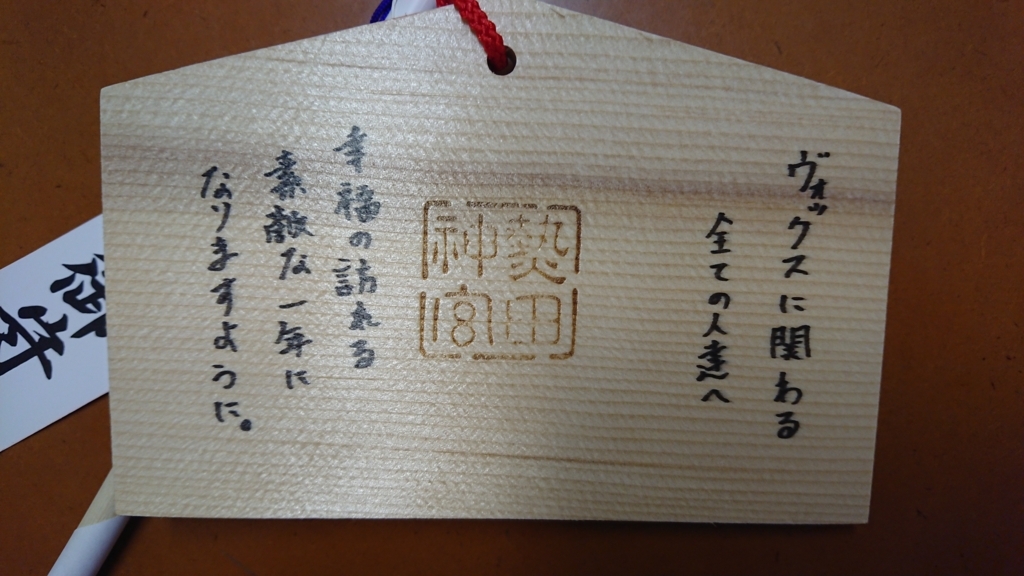 ヴォックスに関わる
全ての人達へ
熱田
神宮
幸福の訪れる
素敵な一年に
なりますように。